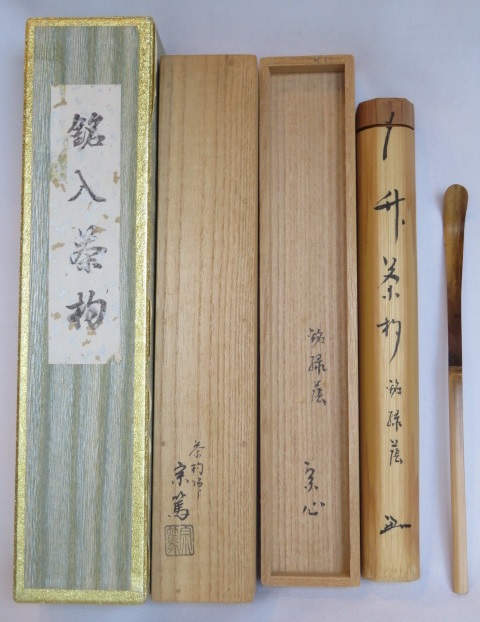 銘入茶杓
茶杓師
宗篤
銘緑蔭
実心
茶杓
銘緑蔭